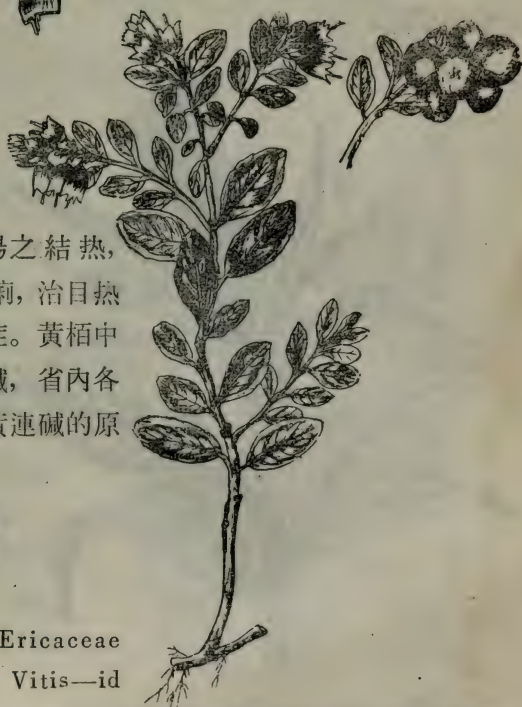 之結热,
痢,治目热
。黃栢中
,省內各
連碱的原
Ericaceae
Vitis—id